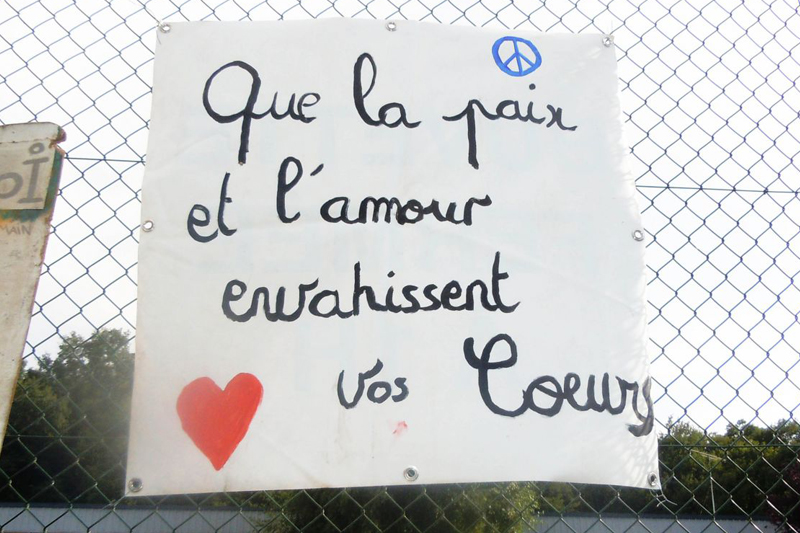 Que la paix
et l'amour
envahissent
vos Coeurs